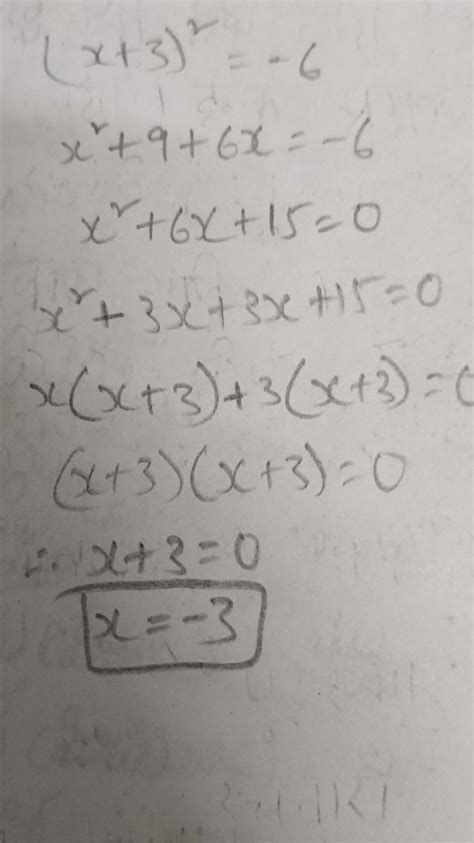 (x+3)² = -6
x² + 9 + 6x = -6
x² + 6x + 15 = 0
x² + 3x + 3x + 15 = 0
x(x+3) + 3(x+3) = 0
(x+3)(x+3) = 0
∴ x+3 = 0
x = -3